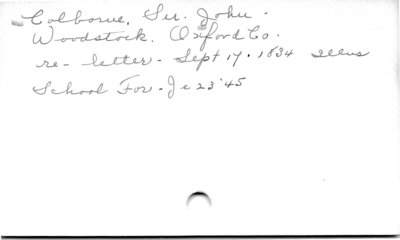 Colborne, Sir. John.
Woodstock. Oxford Co.
re- letter - Sept 17. 1834
School For - Je 23 '45